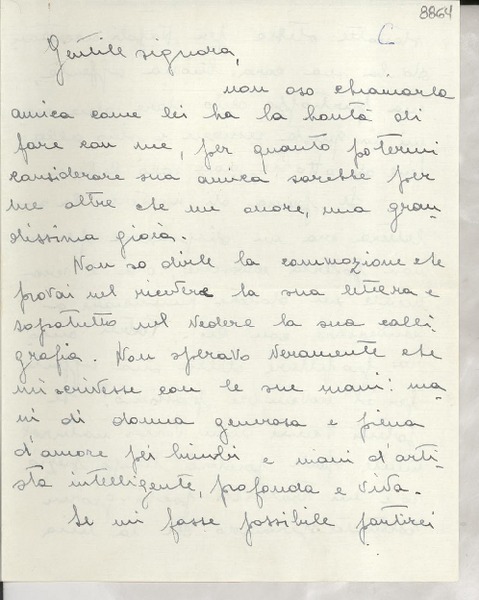 8864
C
Gentile signora,
non oso chiamarla
amica come lei ha la bontà di
fare con me, per quanto potermi
considerare sua amica sarebbe per
me oltre che un onore, una gran-
dissima gioia.
Non so dirle la commozione che
provai nel ricevere la sua lettera e
sopratutto nel vedere la sua calli
grafia. Non speravo veramente che
mi scrivesse con le sue mani: ma-
ni di donna generosa e piena
d'amore pei bimbi e mani d'arti-
sta intelligente, profonda e viva.
Se mi fosse possibile partirei